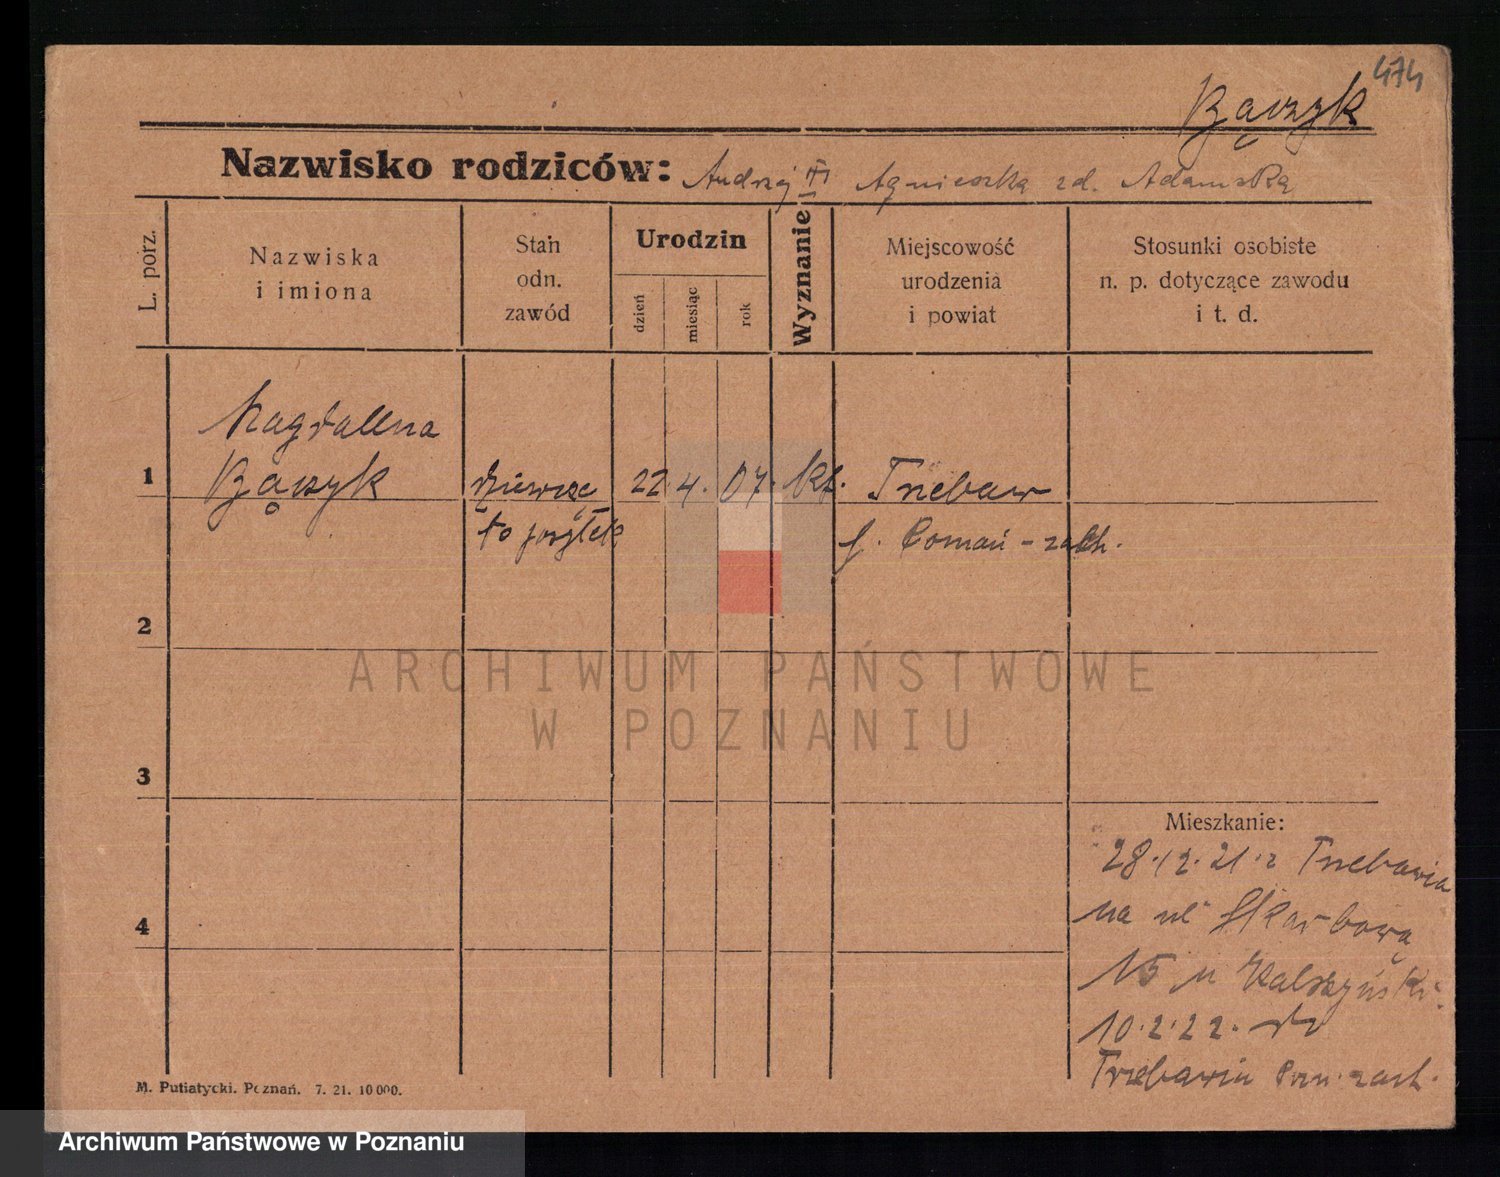 474
Bączyk
Nazwisko rodziców: Andrzej Agnieszka zd. Adamska
L. porz.
Nazwiska
i imiona
Stan
odn.
zawód
Urodzin
dzień
miesiąc
rok
Wyznanie
Miejscowość
urodzenia
i powiat
Stosunki osobiste
n. p. dotyczące zawodu
i t. d.
Magdalena
1 Bączyk dziewczę 22 4. 07. kt. Trzebaw
to posyłek p. Poznań-zach.
2
3
4
Mieszkanie:
28.12.21 z Trzebawia
na ul Skarbową
15 u
10.2.22. do
Trzebawia Pozn. zach.
M. Putiatycki. Poznań. 7. 21. 10 000.
ARCHIWUM PAŃSTWOWE
W POZNANIU
Archiwum Państwowe w Poznaniu